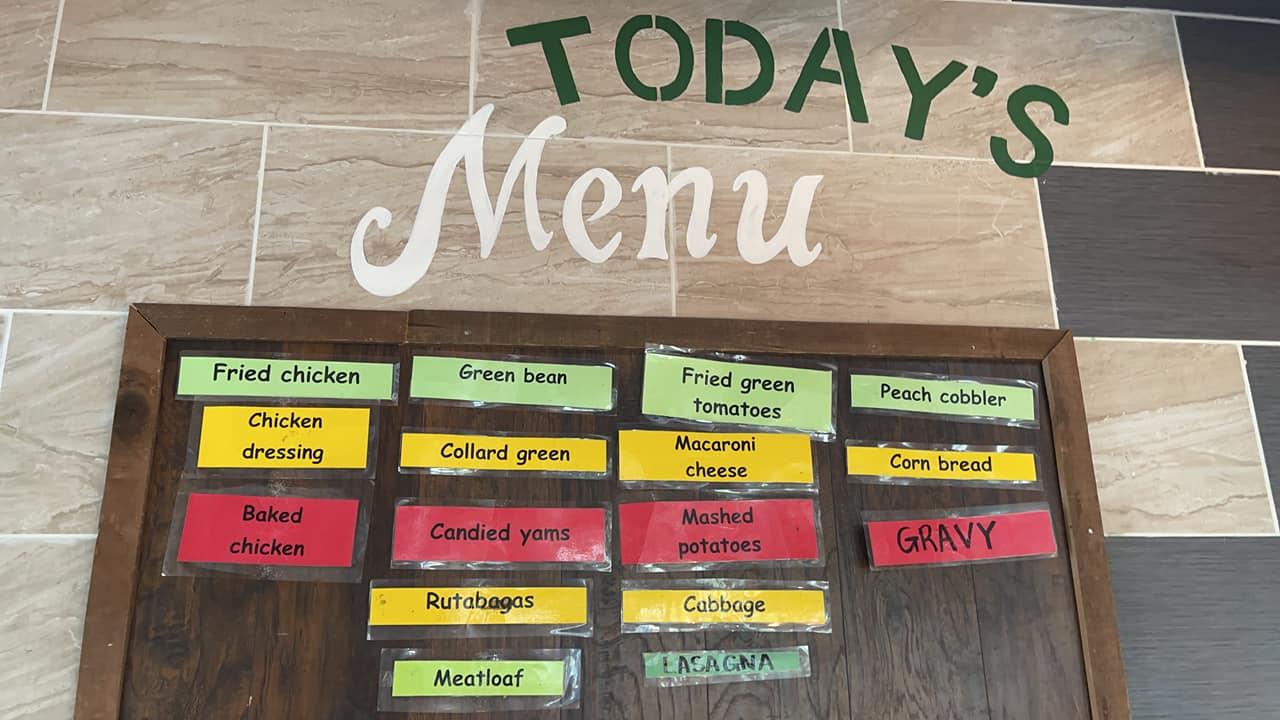 TODAY'S
Menu
Fried chicken
Chicken
dressing
Baked
chicken
Green bean
Collard green
Candied yams
Rutabagas
Meatloaf
Fried green
tomatoes
Macaroni
cheese
Mashed
potatoes
Cabbage
LASAGNA
Peach cobbler
Corn bread
GRAVY